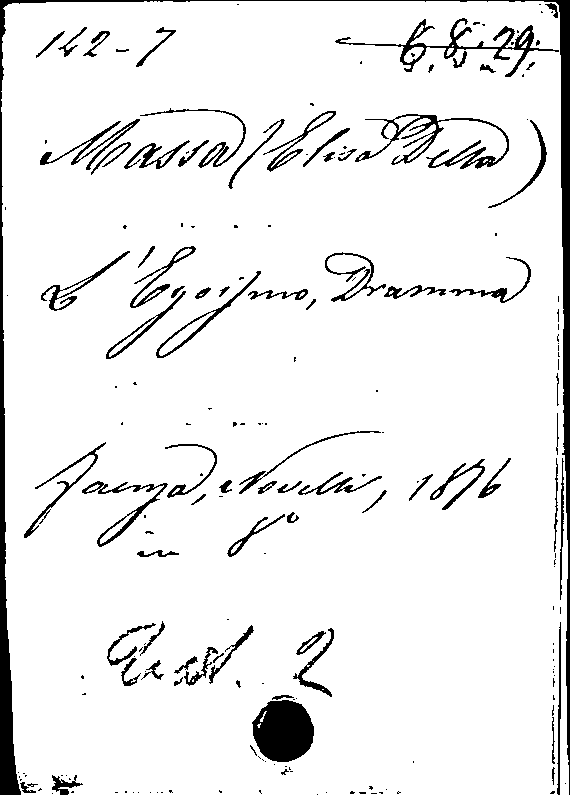 142-7 6.8.29.
Massa (Elisa Della)
L'Egoismo, Dramma
Faenza, Novelli, 1876
in 8°
2